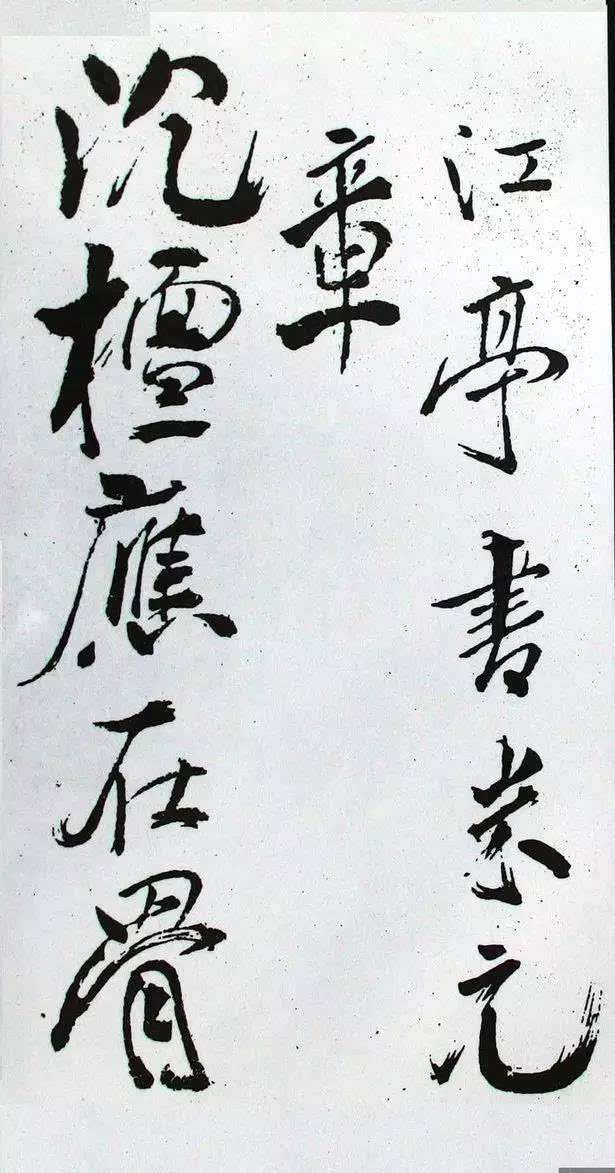 江亭書元
章
沉檀應在骨